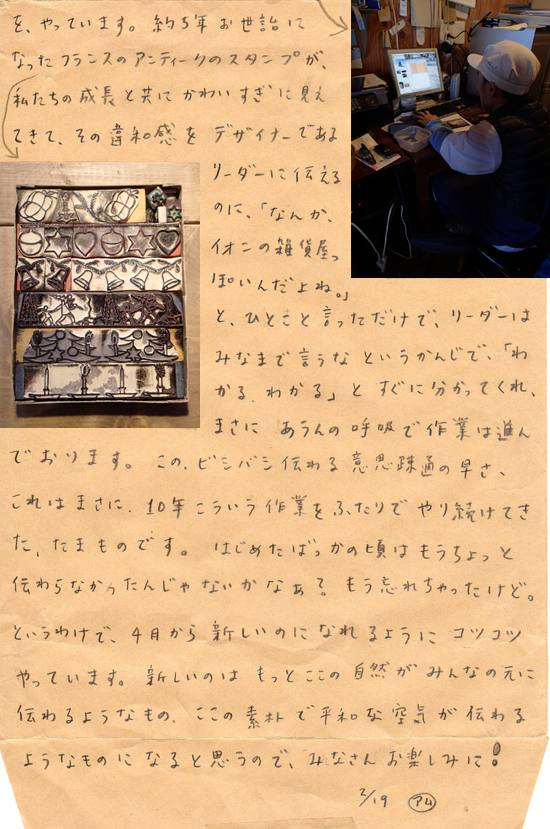 を、やっています。約5年お世話に
なったフランスのアンティークのスタンプが、
私たちの成長と共にかわいすぎに見え
てきて、その違和感をデザイナーである
リーダーに伝える
のに、「なんか、
イオンの雑貨屋っ
ぽいんだよね。」
と、ひとこと言っただけで、リーダーは
みなまで言うなというかんじで、「わ
かる、わかる」とすぐに分かってくれ、
まさにあうんの呼吸で作業は進ん
でおります。この、ビシバシ伝わる意思疎通の早さ、
これはまさに、10年こういう作業をふたりでやり続けてき
た、たまものです。はじめたばっかの頃はもうちょっと
伝わらなかったんじゃないかなぁ?もう忘れちゃったけど。
というわけで、4月から新しいのになれるようにコツコツ
やっています。新しいのはもっとここの自然がみんなの元に
伝わるようなもの、ここの素朴で平和な空気が伝わる
ようなものになると思うので、みなさんお楽しみに!
2/19 アム